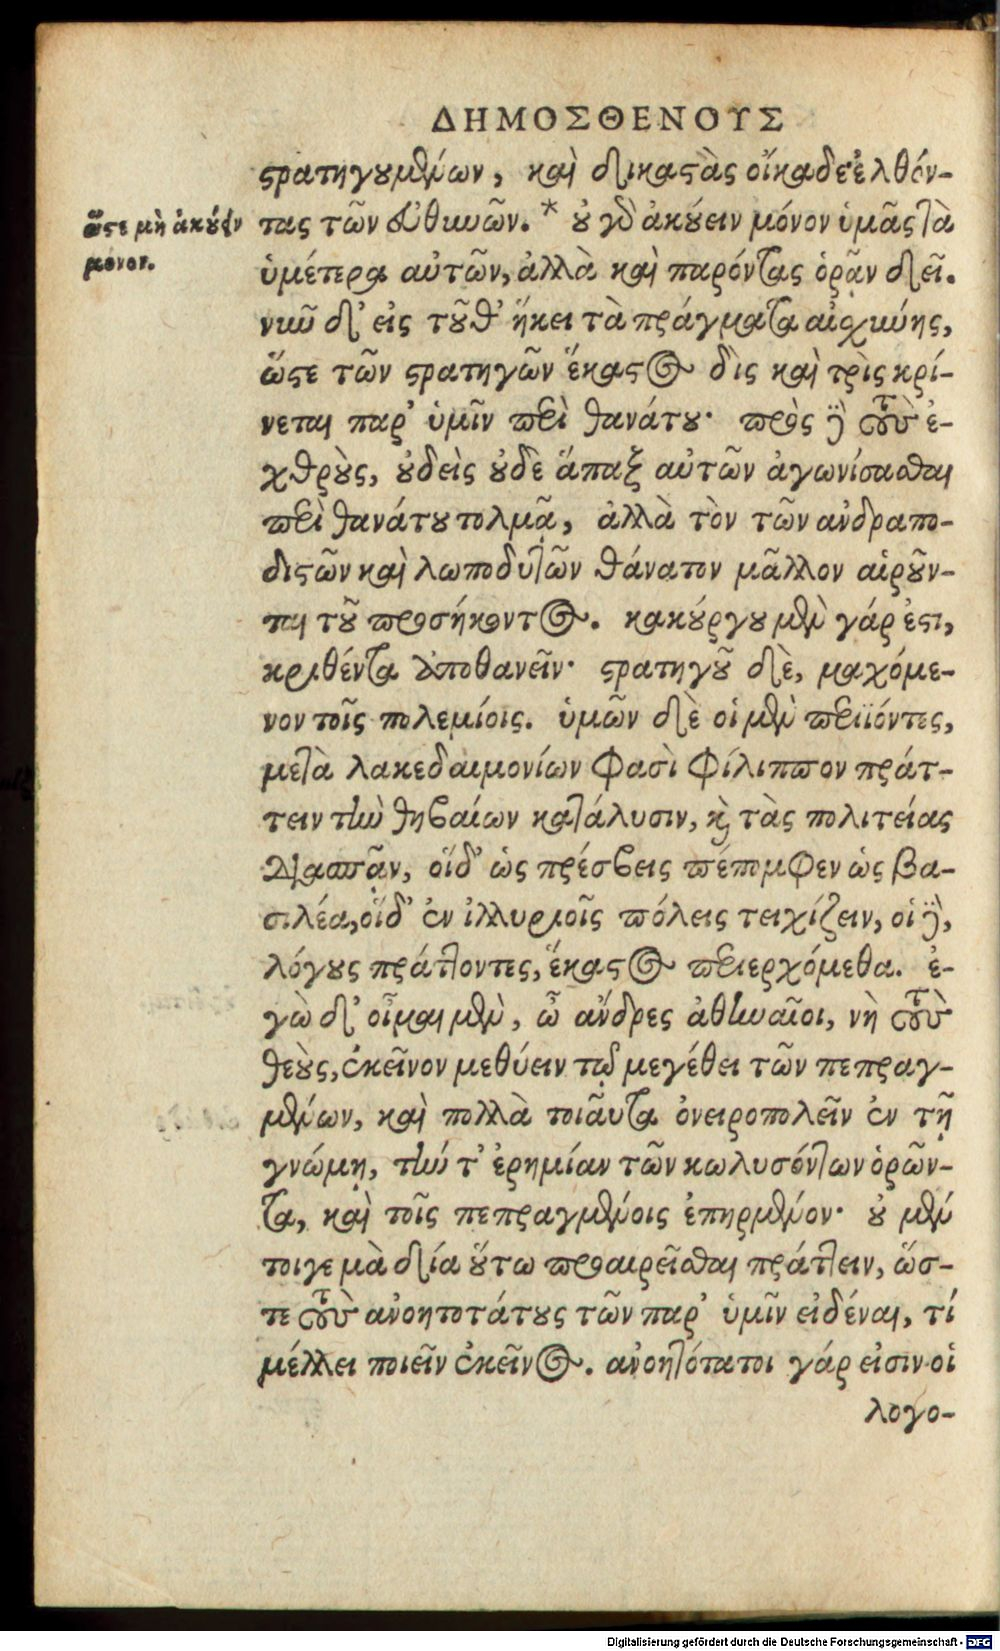 ΔΗΜΟΣΘΕΝΟΥΣ
στρατηγουμένων, καὶ δικαστὰς οἴκαδε ἐλθόν-
ὥστε μὴ ἀκούειν
μόνον.
τας τῶν εὐθυνῶν.* οὐ γὰρ ἀκούειν μόνον ὑμᾶς τὰ
ὑμέτερα αὐτῶν, ἀλλὰ καὶ παρόντας ὁρᾷν δεῖ.
νῦν δ' εἰς τοῦθ' ἥκει τὰ πράγματα αἰσχύνης,
ὥστε τῶν στρατηγῶν ἕκαστος δὶς καὶ τρὶς κρί-
νεται παρ' ὑμῖν περὶ θανάτου· πρὸς δὲ τοὺς ἐ-
χθροὺς, οὐδεὶς οὐδὲ ἅπαξ αὐτῶν ἀγωνίσασθαι
περὶ θανάτου τολμᾷ, ἀλλὰ τὸν τῶν ἀνδραπο-
διστῶν καὶ λωποδυτῶν θάνατον μᾶλλον αἱροῦν-
ται τοῦ προσήκοντος. κακούργου μὲν γάρ ἐστι,
κριθέντα ἀποθανεῖν· στρατηγοῦ δὲ, μαχόμε-
νον τοῖς πολεμίοις. ὑμῶν δὲ οἱ μὲν περιϊόντες,
μετὰ λακεδαιμονίων φασὶ φίλιππον πράτ-
τειν τὴν θηβαίων κατάλυσιν, καὶ τὰς πολιτείας
διασπᾷν, οἵδ' ὡς πρέσβεις πέπομφεν ὡς βα-
σιλέα, οἵδ' ἐν ἰλλυριοῖς πόλεις τειχίζειν, οἱ δὲ,
λόγους πράττοντες, ἕκαστος περιερχόμεθα. ἐ-
γὼ δ' οἶμαι μὲν, ὦ ἄνδρες ἀθηναῖοι, νὴ τοὺς
θεοὺς, ἐκεῖνον μεθύειν τῷ μεγέθει τῶν πεπραγ-
μένων, καὶ πολλὰ τοιαῦτα ὀνειροπολεῖν ἐν τῇ
γνώμῃ, τήν τ' ἐρημίαν τῶν κωλυσόντων ὁρῶν-
τα, καὶ τοῖς πεπραγμένοις ἐπηρμένον· οὐ μέν
τοιγε μὰ δία οὕτω προαιρεῖσθαι πράττειν, ὥσ-
τε τοὺς ἀνοητοτάτους τῶν παρ' ὑμῖν εἰδέναι, τί
μέλλει ποιεῖν ἐκεῖνος. ἀνοητότατοι γάρ εἰσιν οἱ
λογο-
Digitalisierung gefördert durch die Deutsche Forschungsgemeinschaft - DFG